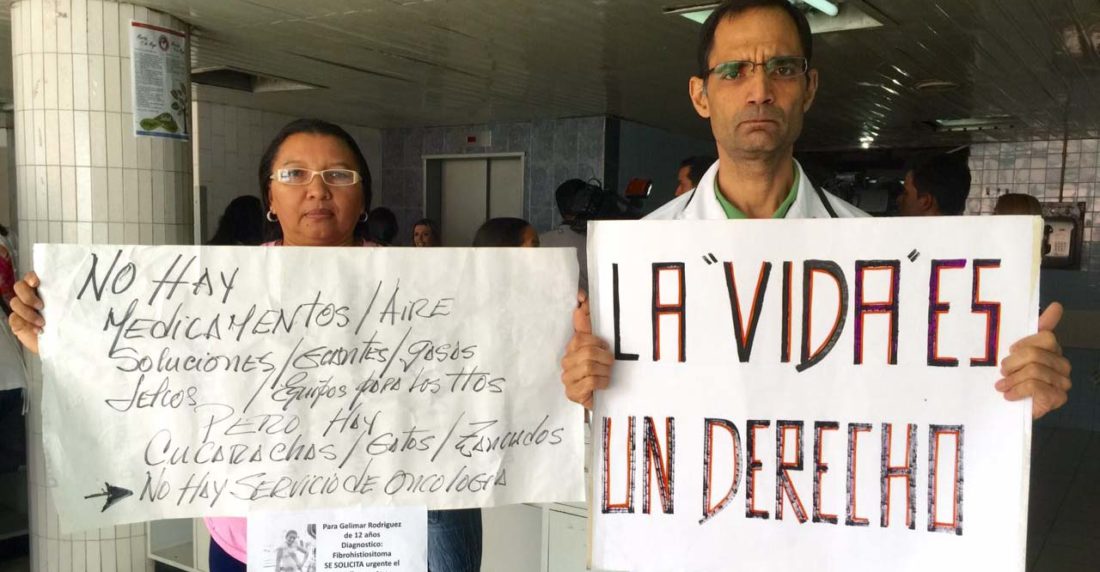 NO HAY
MEDICAMENTOS/AIRE
SOLUCIONES/GUANTES/GASAS
JELCOS /EQUIPOS PARA LOS TTOS
PERO HAY
CUCARACHAS/GATOS/ZANCUDOS
NO HAY SERVICIO DE ONCOLOGIA
Para Gelimar Rodriguez
de 12 años
Diagnostico:
Fibrohistiositoma
SE SOLICITA urgente el
LA "VIDA" ES
UN DERECHO